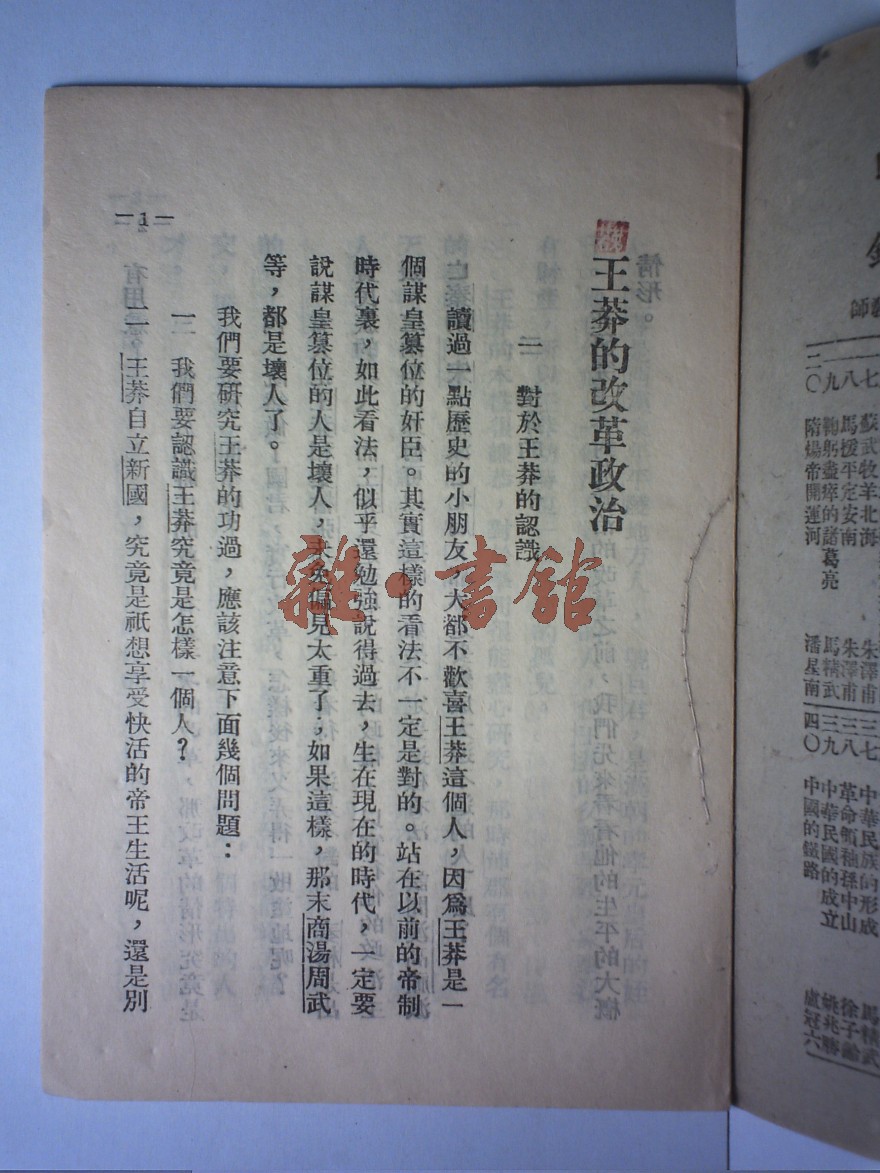 一七 蘇武牧羊北海 朱澤甫
一八 馬援平定安南 朱澤甫
一九 鞠躬盡瘁的諸葛亮 馬精武
二〇 隋煬帝開運河 潘星南
三七 中華民族的形成 馬精武
三八 革命領袖孫中山 徐子
三九 中華民國的成立 姚兆勝
四〇 中國的鐵路 盧冠六
王莽的改革政治
一 對於王莽的認識
讀過一點歷史的小朋友，大都不歡喜王莽這個人，因爲王莽是一
個謀皇篡位的奸臣。其實這樣的看法不一定是對的。站在以前的帝制
時代裏，如此看法，似乎還勉強說得過去，生在現在的時代，一定要
說謀皇篡位的人是壞人，未免偏見太重了；如果這樣，那末商湯周武
等，都是壞人了。
我們要研究王莽的功過，應該注意下面幾個問題：
一 我們要認識王莽究竟是怎樣一個人？
二 王莽自立新國，究竟是祇想享受快活的帝王生活呢，還是別
—1—
雜·書館